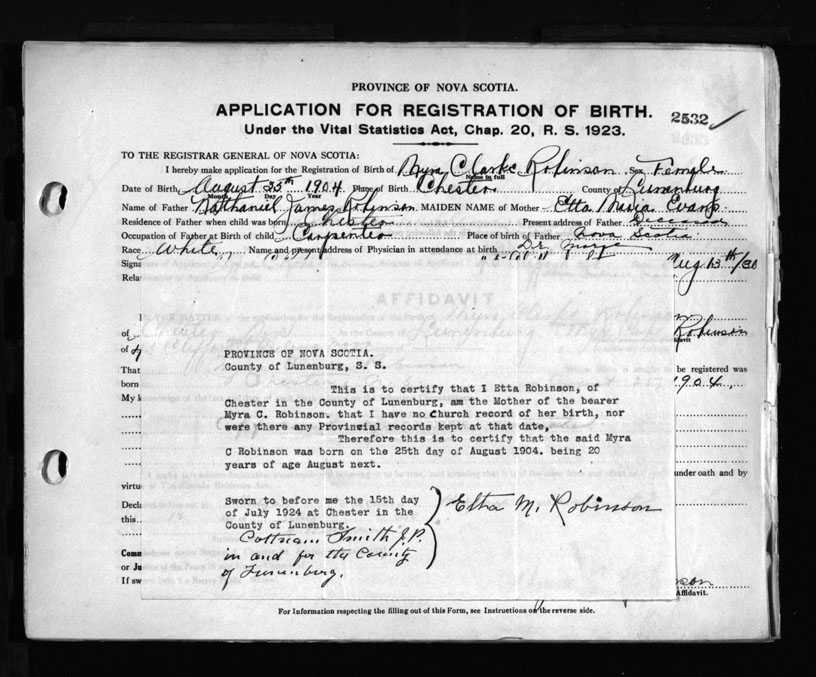 PROVINCE OF NOVA SCOTIA.
APPLICATION FOR REGISTRATION OF BIRTH.
2532
Under the Vital Statistics Act, Chap. 20, R. S. 1923.
TO THE REGISTRAR GENERAL OF NOVA SCOTIA:
I hereby make application for the Registration of Birth of Myra Clarke Robinson Sex Female
Name in full
Date of Birth August 25th 1904 Place of Birth Chester County of Lunenburg
Month Day Year
Name of Father Nathaniel James Robinson MAIDEN NAME of Mother Etta Maria Evans
Residence of Father when child was born Chester Present address of Father Deceased
Occupation of Father at Birth of child Carpenter Place of birth of Father Nova Scotia
Race White Name and present address of Physician in attendance at birth Dr.
Signa Aug 13th/30
Rela
AFFIDAVIT
of Robinson
of
PROVINCE OF NOVA SCOTIA.
County of Lunenburg, S. S.
That be registered was
born 1904
This is to certify that I Etta Robinson, of
My k
Chester in the County of Lunenburg, am the Mother of the bearer
Myra C. Robinson. that I have no Church record of her birth, nor
were there any Provincial records kept at that date,
Therefore this is to certify that the said Myra
C Robinson was born on the 25th day of August 1904. being 20
years of age August next.
under oath and by
virtu
Sworn to before me the 15th day
of July 1924 at Chester in the
County of Lunenburg.
Etta M. Robinson
Decla
this
Cottnam Smith J.P.
in and for the County
of Lunenburg.
Comm
or Ju
If sw
Affidavit.
For Information respecting the filling out of this Form, see Instructions on the reverse side.